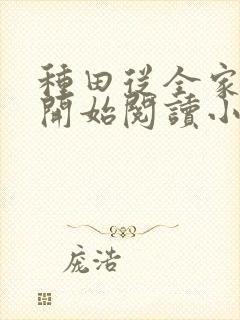 種田從全家
開始閱讀小
庞浩